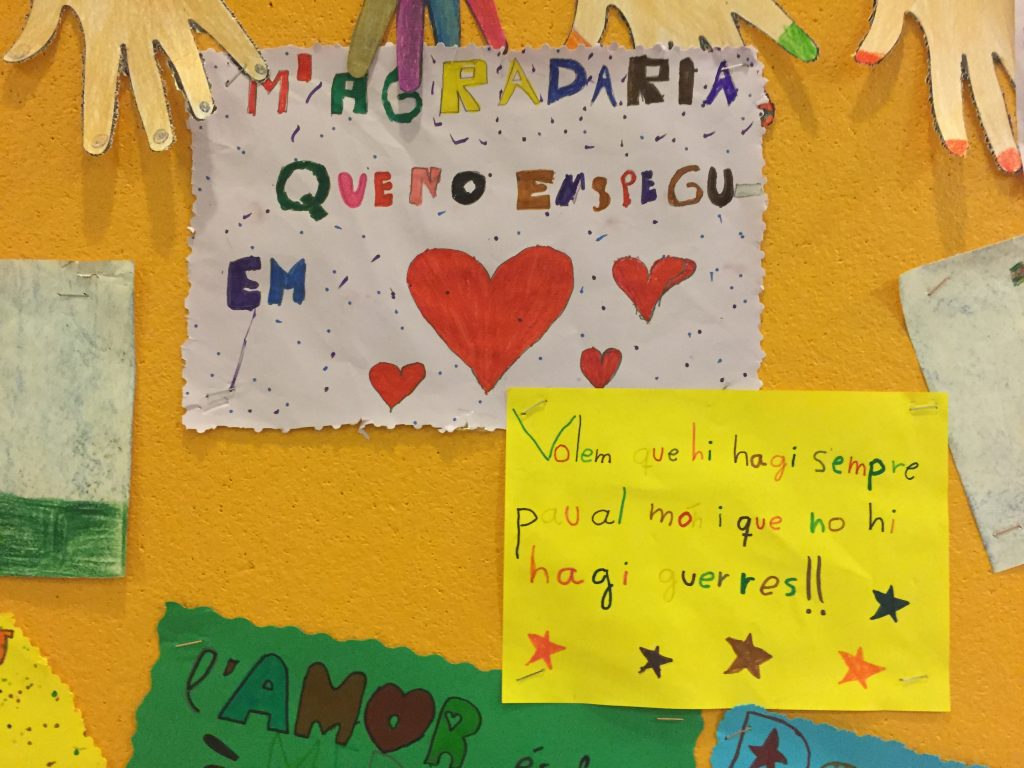 M'AGRADARIA
QUE NO ENS PEGU
EM
Volem que hi hagi sempre
pau al món i que no hi
hagi guerres!!
l'AMOR
és